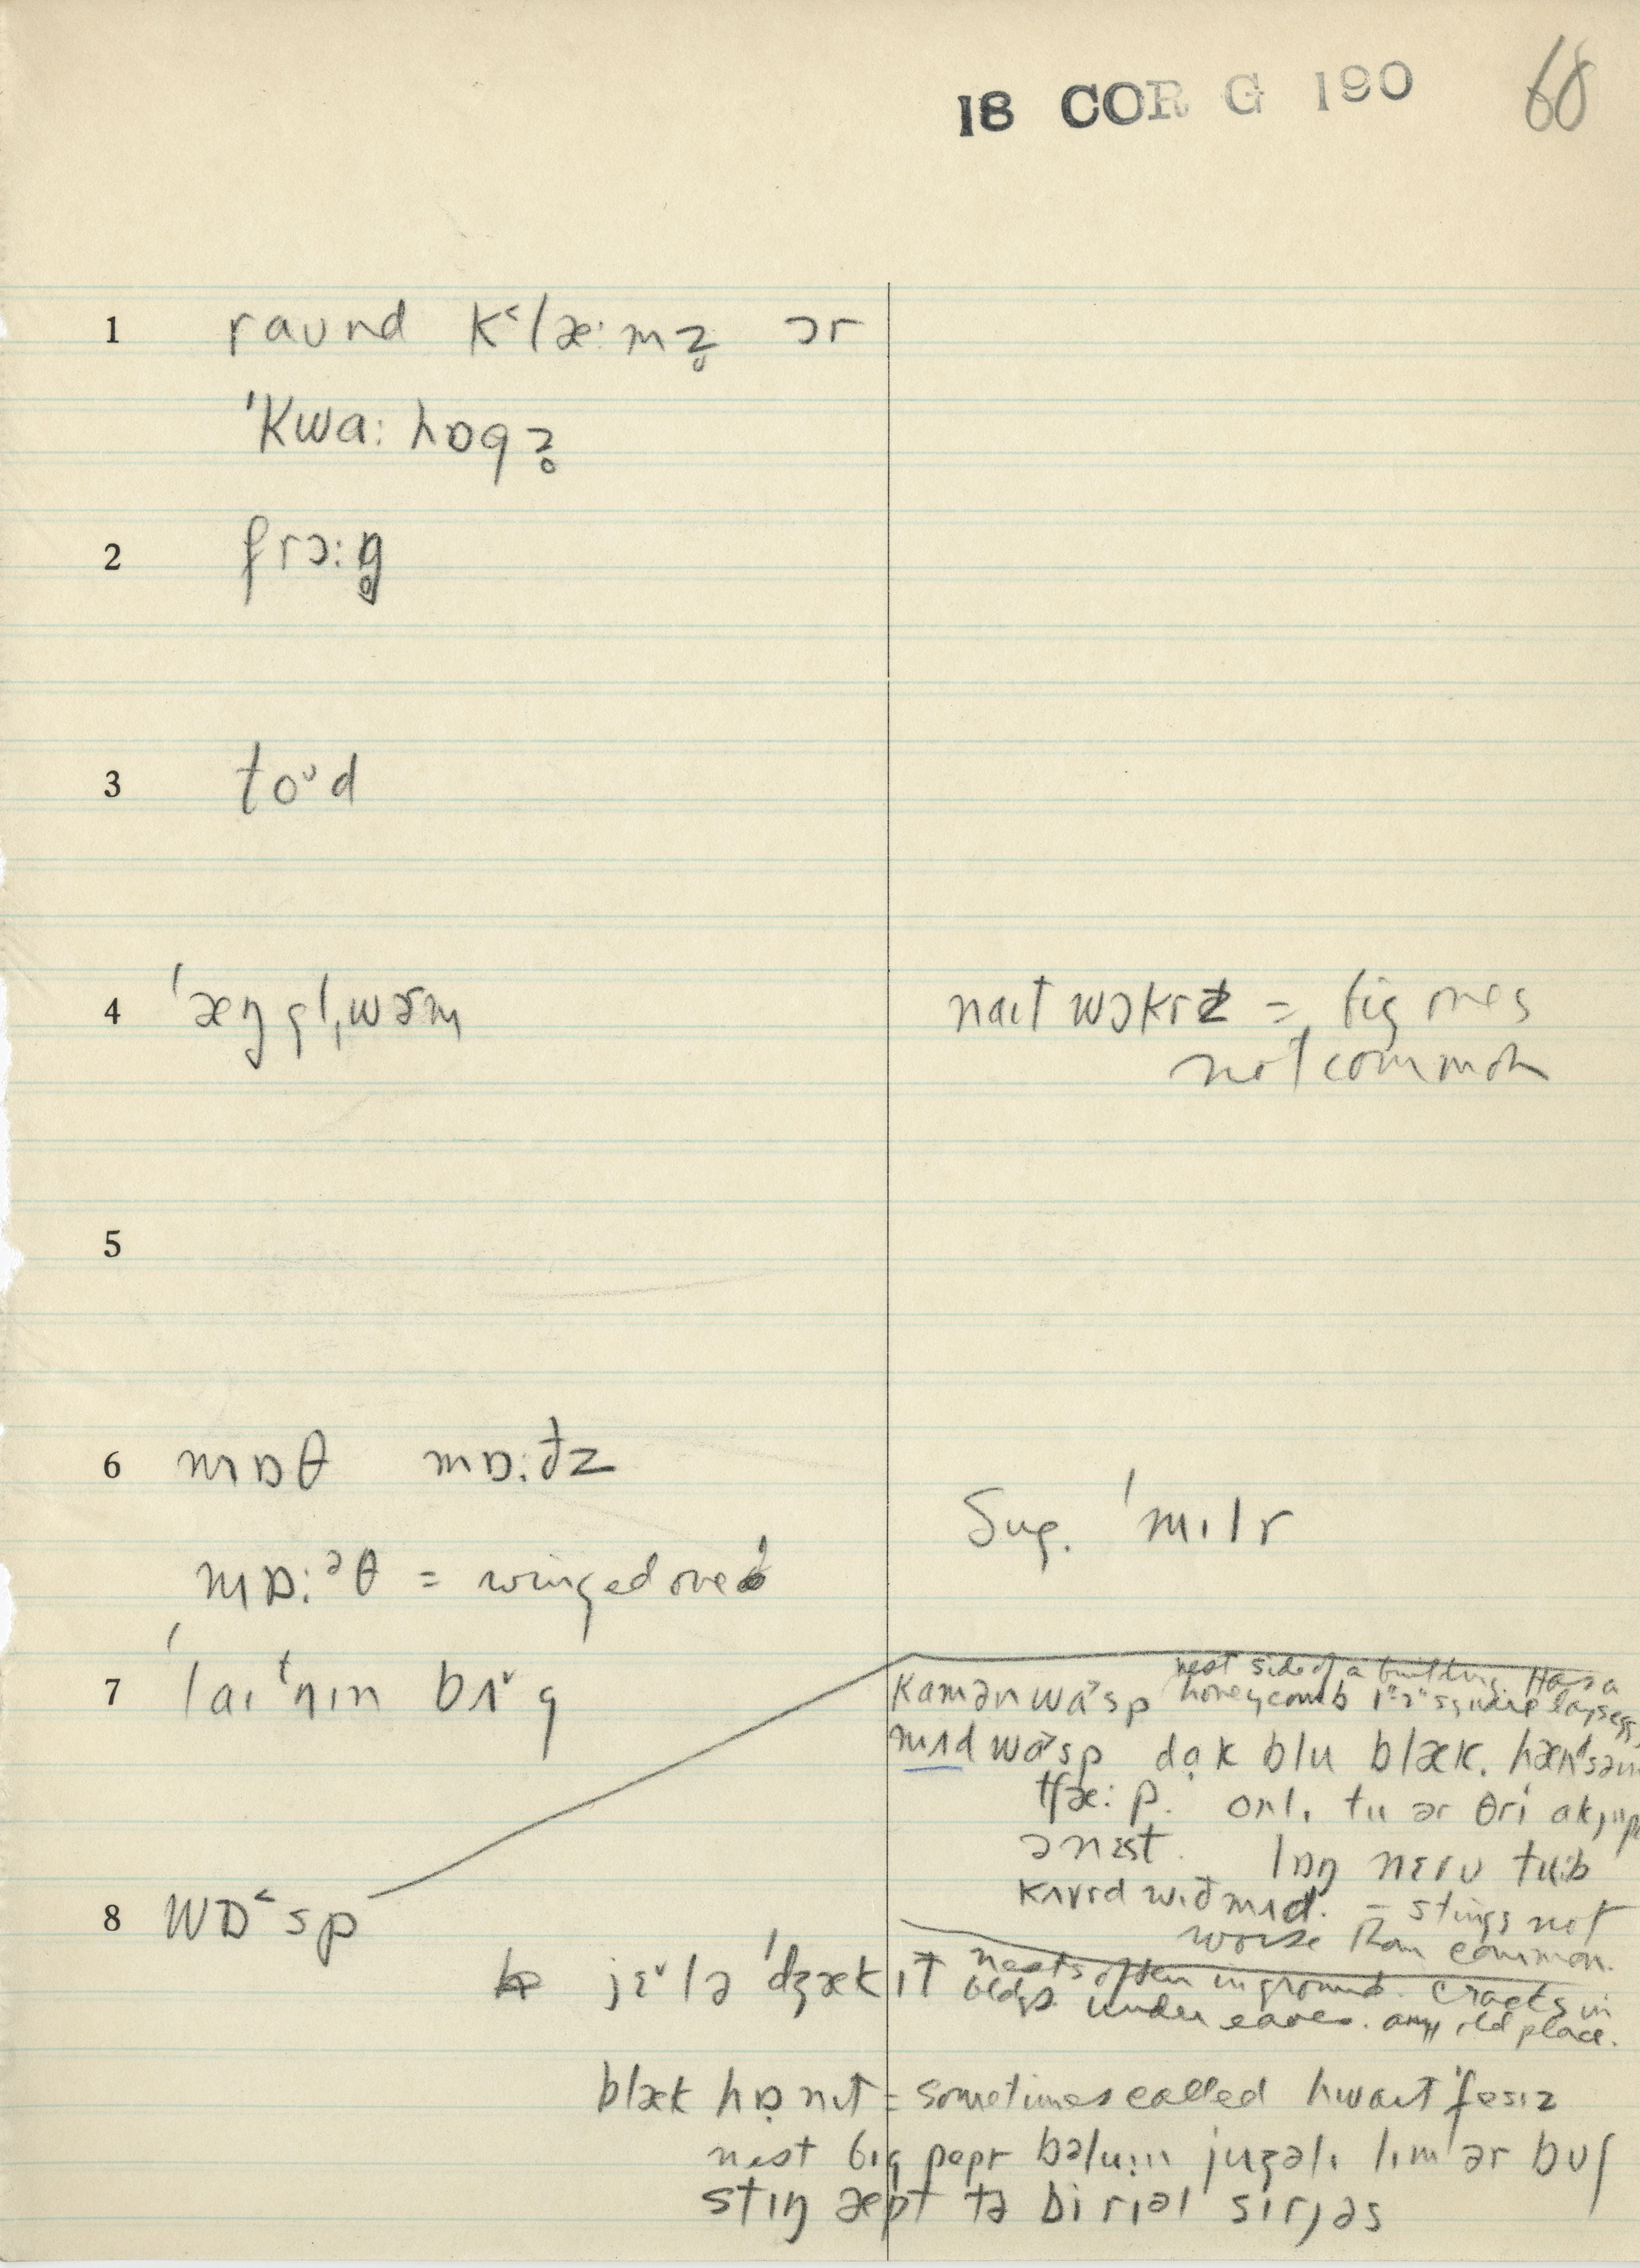 18 COR G 190 68
1 raʊnd k˂læ:mz̥ ɔr
ˈkwɑ:hɒgz̥
2 frɔ:g̥
3 toᶷd
4 ˈæŋgl̩ˌwɚm naɪt wɔkrz = big ones
not common
5
6 mɒθ mɒ:ðz
Sug. ˈmɪlr
mɒ:ᵊθ = winged one
7 ˈlaɪᵗnɪn bʌ˅g
nest side of a building. Has a
kɑmən wɑ˃sp honeycomb 1"-2" square lays eggs
mʌd wɑ˃sp dɑ̣k blu blæk. hænᵈsəm
tʃæ:p. onlɪ tu ər θri ɑkjup
ə nɛst. lɒŋ nɛro tu:b
kʌvrd wɪð mʌd. = stings not
worse than common.
8 wɒ˂sp
jɛ˅lə ˈdʒækɪt nests often in ground. cracks in
bldgs. under eaves. any old place.
blæk hɒ̣nɪt = sometimes called hwaɪt ˈfesɪz
nest bɪg pepr bəlu:n juʒəlɪ lɪm ər bʊʃ
stɪŋ æpt tə bi riəl sɪrjəs